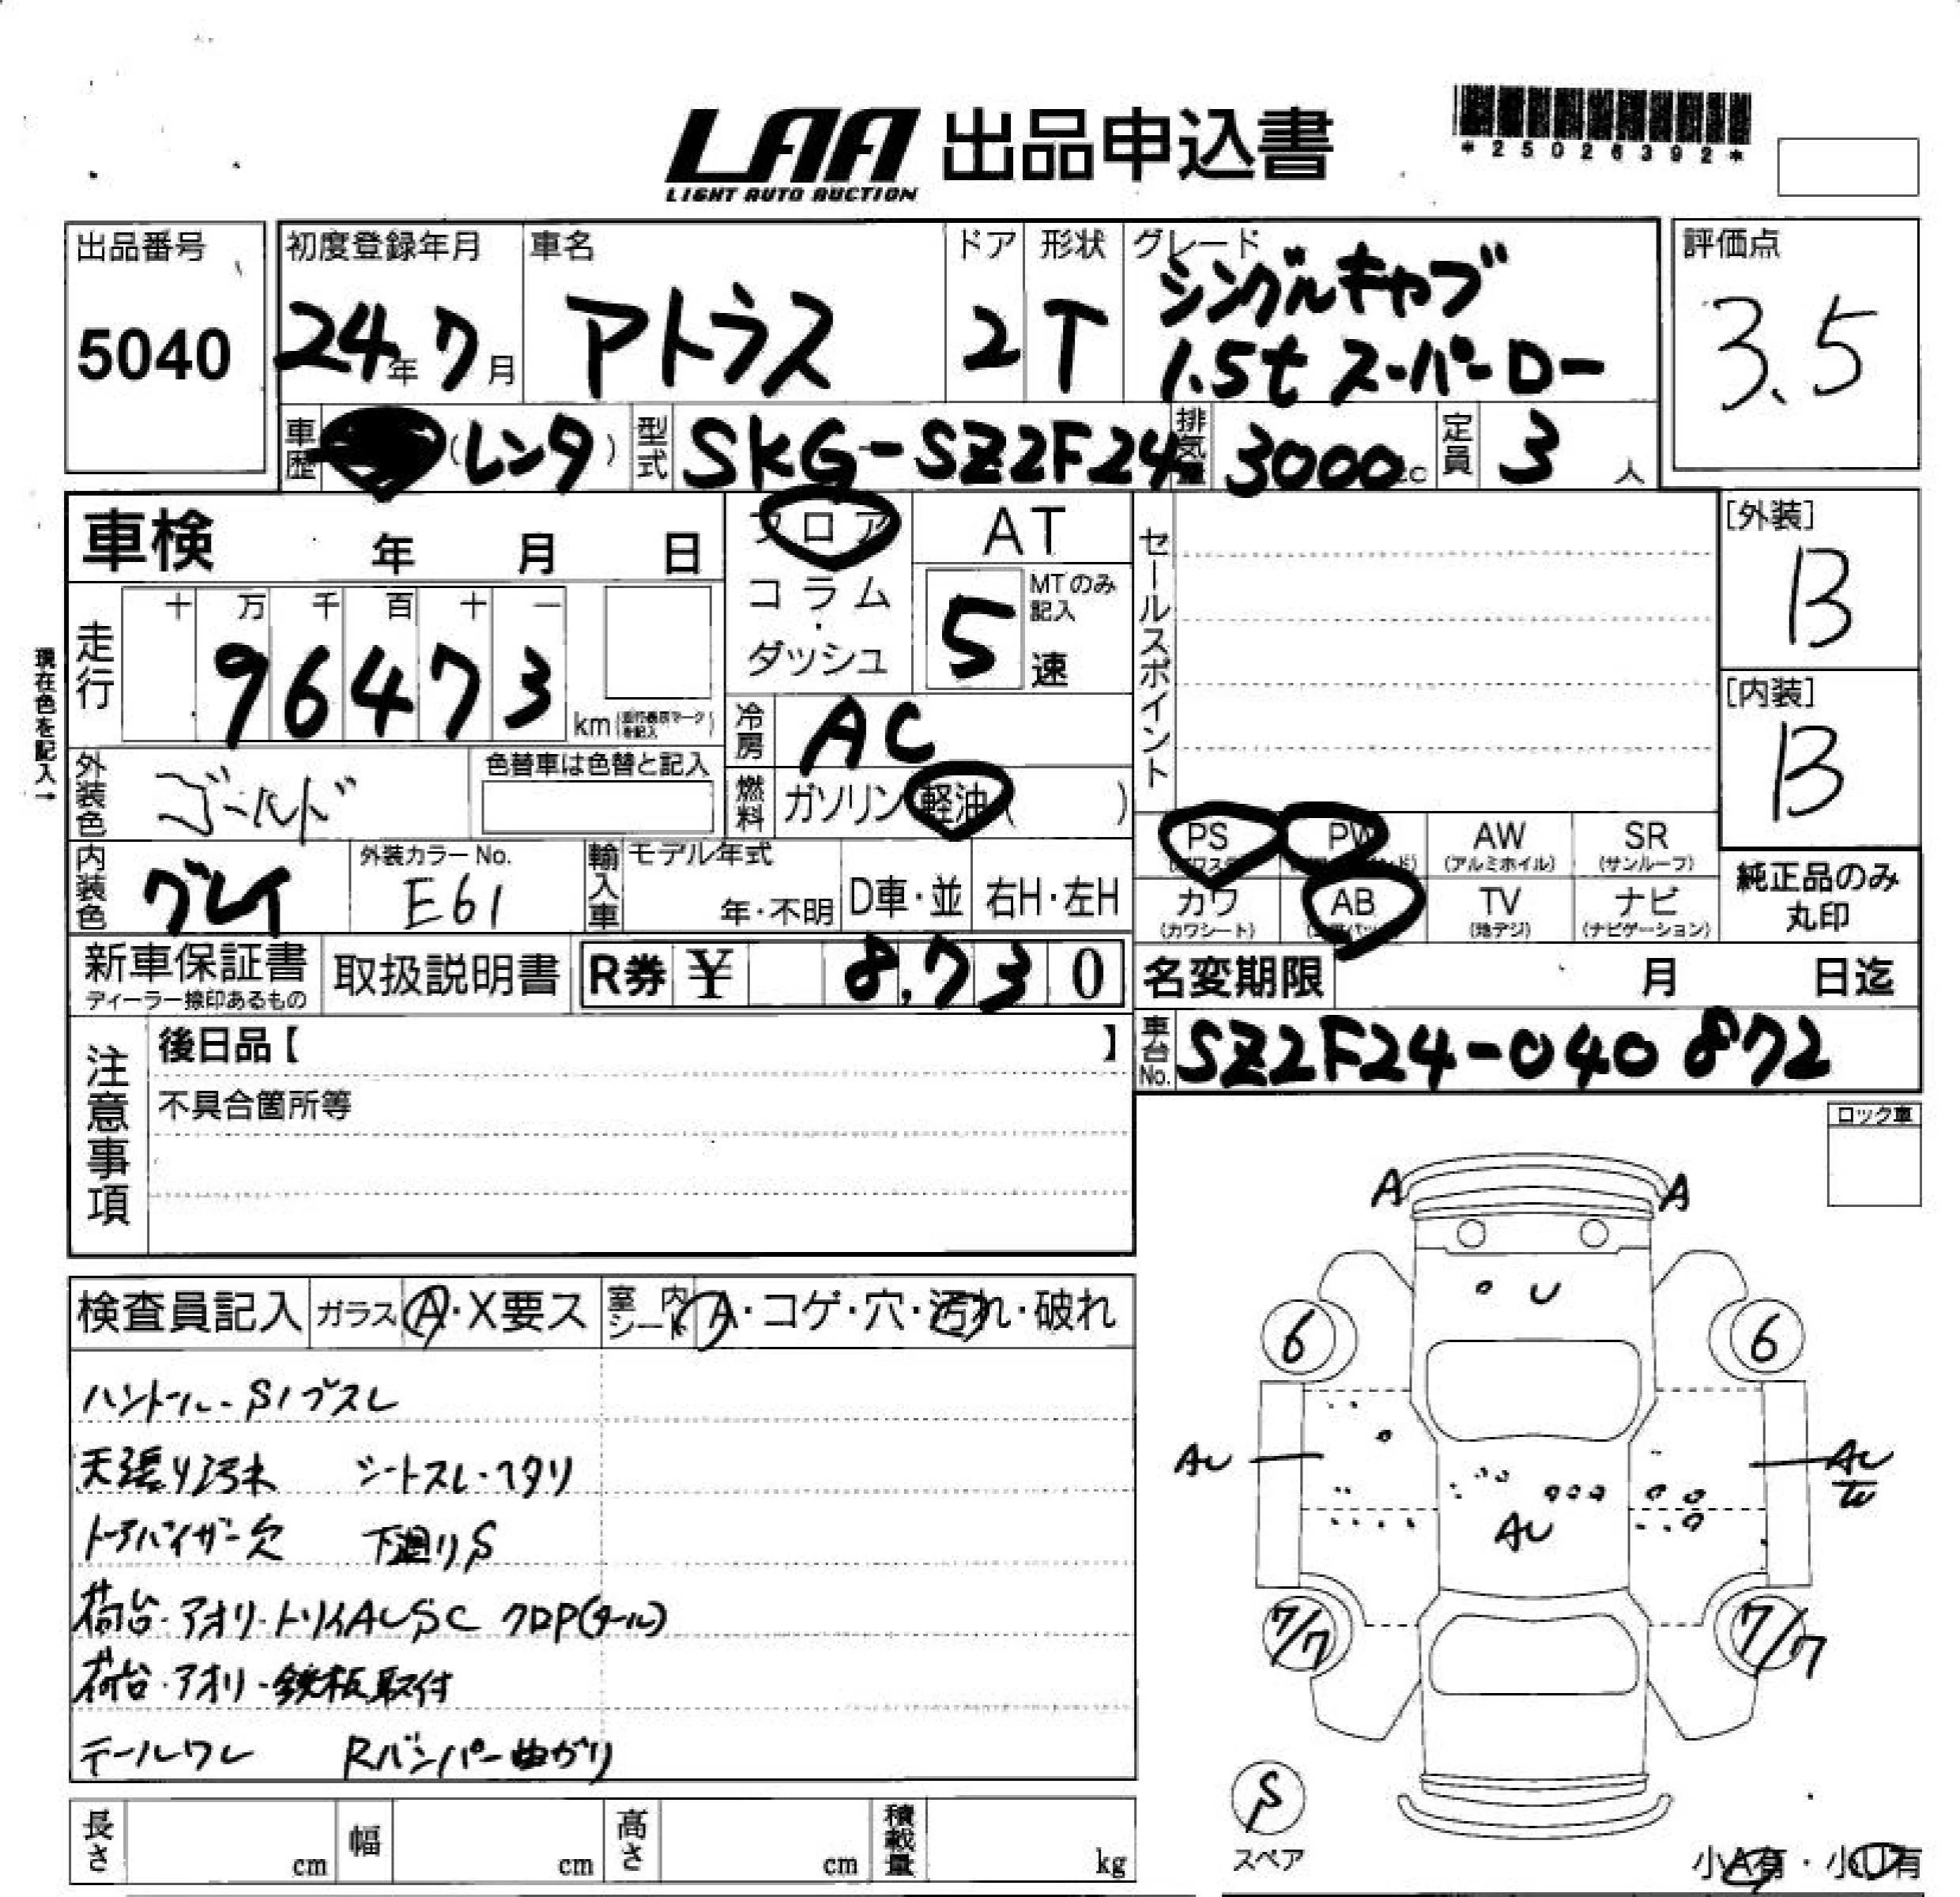 LAA 出品申込書
LIGHT AUTO AUCTION
*25026392*
出品番号
5040
初度登録年月
24年7月
車名
アトラス
ドア
2
形状
T
グレード
シングルキャブ
1.5t スーパーロー
評価点
3.5
車歴
(レンタ)
型式
SKG-SZ2F24
排気量
3000cc
定員
3人
車検 年 月 日
フロア
コラム
・
ダッシュ
AT
5
MTのみ
記入
速
セールスポイント
[外装]
B
[内装]
B
現在色を記入→
走行
十 万 千 百 十 一
96473
km
冷房
AC
外装色
ゴールド
色替車は色替と記入
燃料
ガソリン 軽油 ( )
内装色
グレイ
外装カラーNo.
E61
輸入車
モデル年式
年・不明
D車・並
右H・左H
PS
PW
AW
(アルミホイル)
SR
(サンルーフ)
カワ
(カワシート)
AB
TV
(地デジ)
ナビ
(ナビゲーション)
純正品のみ
丸印
新車保証書
ディーラー捺印あるもの
取扱説明書
R券 ¥ 8,730
名変期限 月 日迄
車台No.
SZ2F24-040872
注意事項
後日品【 】
不具合箇所等
ロック車
検査員記入
ガラス
A・X要ス
室内シート
A・コゲ・穴・汚れ・破れ
ハンドル-S/ブスレ
天張り汚れ シートスレ・ヘタリ
ドアバイザー欠 下廻りS
荷台・アオリ・トリイAUSC クロP(タール)
荷台・アオリ・鉄板取付
テールワレ Rバンパー曲がり
A A
U
6 6
AU
AU
W
AU
7/7 7/7
S
スペア
小A有・小U有
長さ cm
幅 cm
高さ cm
積載量 kg